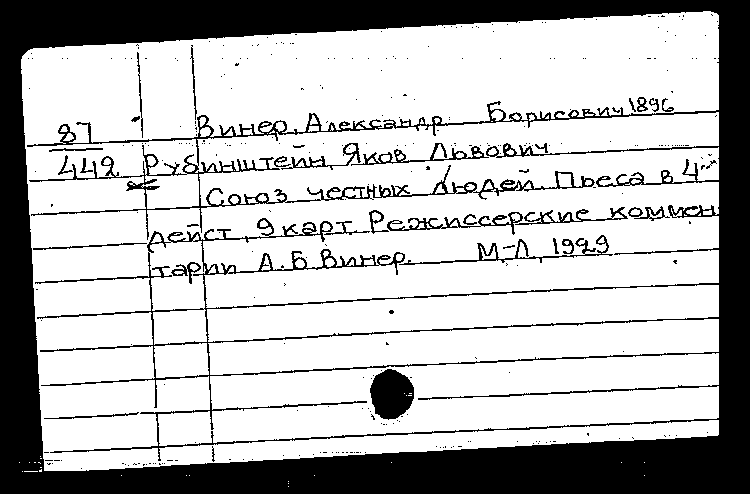 87 Винер, Александр Борисович 1896
442 Рубинштейн, Яков Львович
Союз честных людей. Пьеса в 4х
дейст, 9 карт. Режиссерские коммен
тарии А.Б Винер. М-Л, 1929